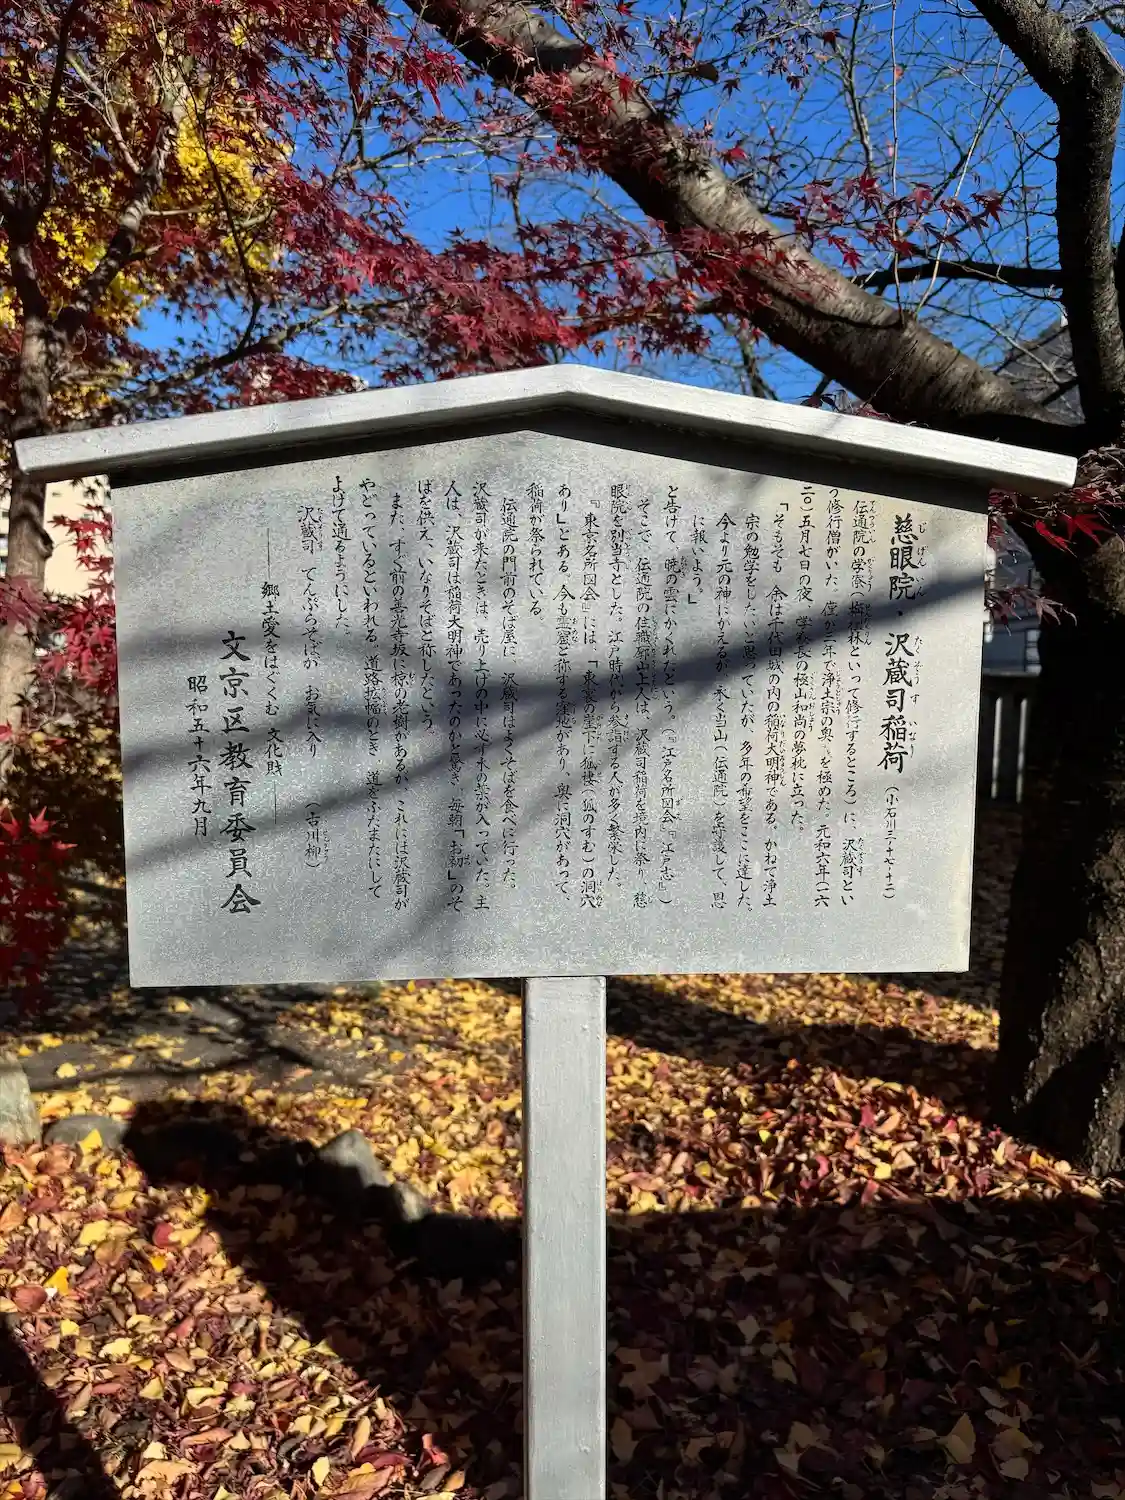 慈眼院・沢蔵司稲荷（小石川三‐十七‐十二）
伝通院の学寮（栴檀林といって修行するところ）に、沢蔵司とい
う修行僧がいた。僅か三年で浄土宗の奥義を極めた。元和六年（一六
二〇）五月七日の夜、学寮長の極山和尚の夢枕に立った。
「そもそも、余は千代田城の内の稲荷大明神である。かねて浄土
宗の勉学をしたいと思っていたが、多年の希望をここに達した。
今より元の神にかえるが、永く当山（伝通院）を守護して、恩
に報いよう。」
と告げて、暁の雲にかくれたという。（『江戸名所図会』『江戸志』）
そこで、伝通院の住職郭山上人は、沢蔵司稲荷を境内に祭り、慈
眼院を別当寺とした。江戸時代から参詣する人が多く繁栄した。
『東京名所図会』には、「東裏の崖下に狐棲（狐のすむ）の洞穴
あり」とある。今も霊窟と称する窪地があり、奥に洞穴があって、
稲荷が祭られている。
伝通院の門前のそば屋に、沢蔵司はよくそばを食べに行った。
沢蔵司が来たときは、売り上げの中に必ず木の葉が入っていた。主
人は、沢蔵司は稲荷大明神であったのかと驚き、毎朝「お初」のそ
ばを供え、いなりそばと称したという。
また、すぐ前の善光寺坂に椋の老樹があるが、これには沢蔵司が
やどっているといわれる。道路拡幅のとき、道をふたまたにして
よけて通るようにした。
沢蔵司　てんぷらそばが　お気に入り　（古川柳）
―郷土愛をはぐくむ　文化財―
文京区教育委員会
昭和五十六年九月